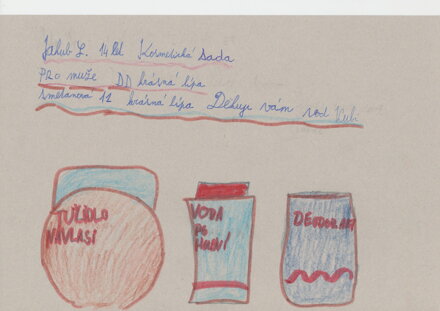 Jakub L. 14 let Kosmetická sada
PRO muže DD krásná lípa
smetanova 12 krásná lípa Děkuji vám
TUŽIDLO
NAVLASI
VODA
PO
HOLENÍ
DEODORANT